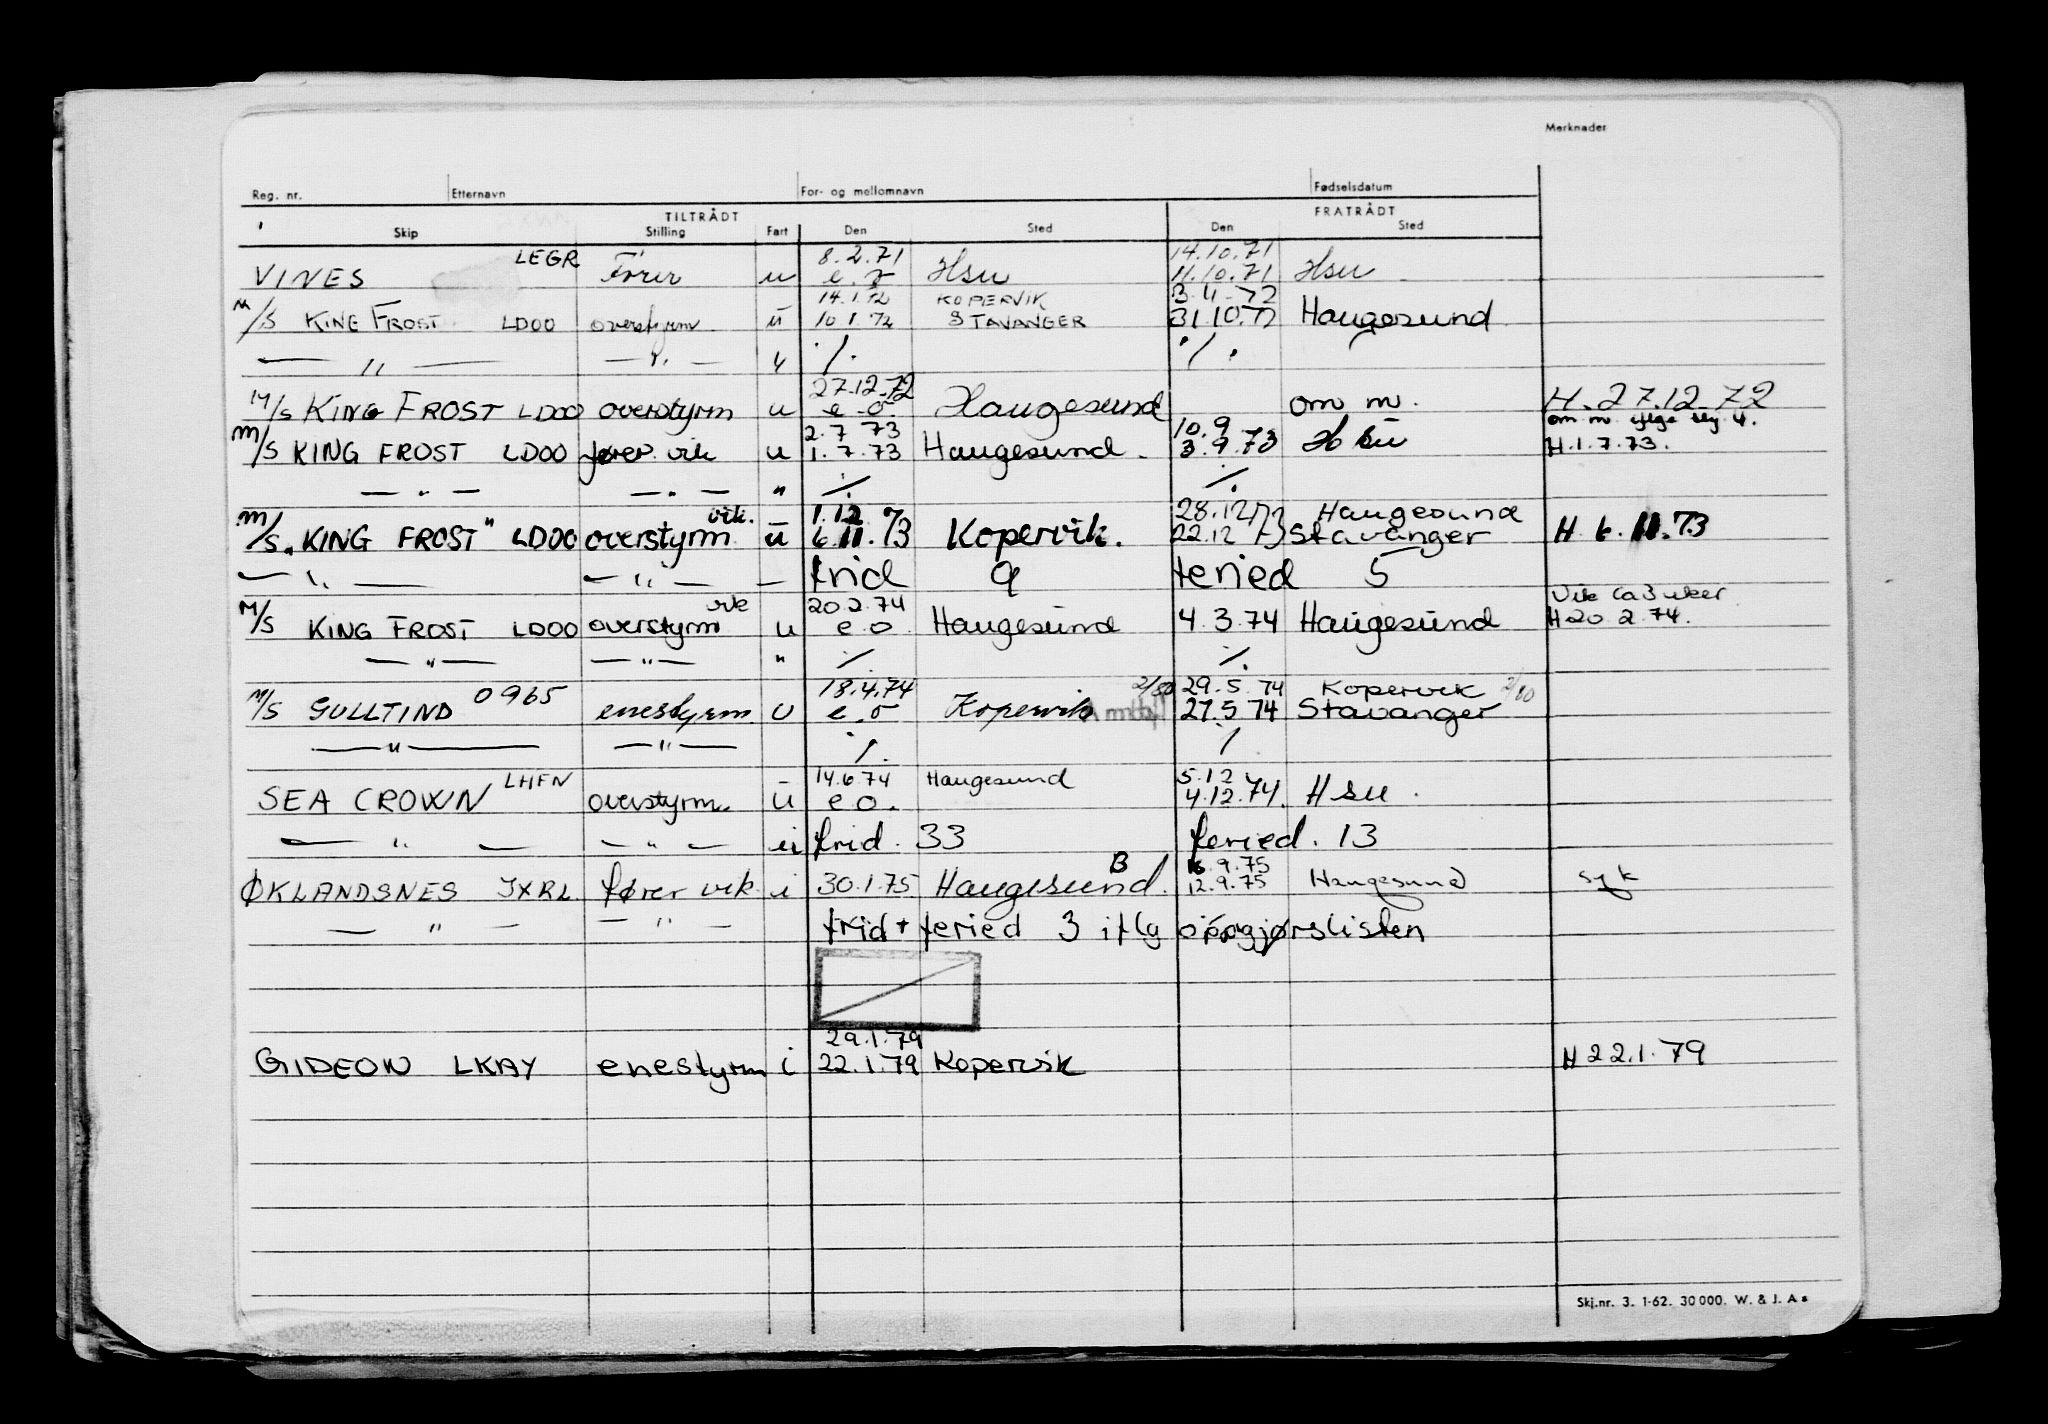 Merknader
Reg. nr. Etternavn For- og mellomnavn Fødselsdatum
TILTRÅDT FRATRÅDT
Skip Stilling Fart Den Sted Den Sted
8.2.71 14.10.71
VINES LEGR Fører u e.d Hsu 11.10.71 Hsu
14.1.72 KOPERVIK 3.11.72
M/S KING FROST LDOO overstyrm u 10.1.72 STAVANGER 31.10.72 Haugesund
— " — — " — " ./. ./.
27.12.72
M/S KING FROST LDOO overstyrm u e.d. Haugesund om m. H. 27.12.72
2.7.73 10.9 om m. ifølge
M/S KING FROST LDOO fører vik u 1.7.73 Haugesund. 3.9.73 Hsu H.1.7.73.
— " — — " — " ./. ./.
vik. 1.12 28.12.73 Haugesund
M/S "KING FROST" LDOO overstyrm u 6.11.73 Kopervik. 22.12.73 Stavanger H 6.11.73
— " — — " — — frid 9 feried 5
vik 20.2.74 Vik ca 3 uker
M/S KING FROST LDOO overstyrm u e.d. Haugesund 4.3.74 Haugesund H 20.2.74.
— " — — " — " ./. ./.
18.4.74 2/80 29.5.74 Kopervik 2/80
M/S GULLTIND 0965 enestyrm u e.d Kopervik 27.5.74 Stavanger
— " — — " — ./. ./
14.6.74 Haugesund 5.12
SEA CROWN LHFN overstyrm. u e.d. 4.12.74. Hsu.
— " — — " — u frid. 33 feried. 13
B 16.9.75
ØKLANDSNES JXRL fører vik i 30.1.75 Haugesund. 12.9.75 Haugesund syk
— " — — " — frid + feried 3 iflg oppgjørslisten
29.1.79
GIDEON LKAY enestyrm i 22.1.79 Kopervik H 22.1.79
Skj.nr. 3. 1-62. 30 000. W. & J. A s